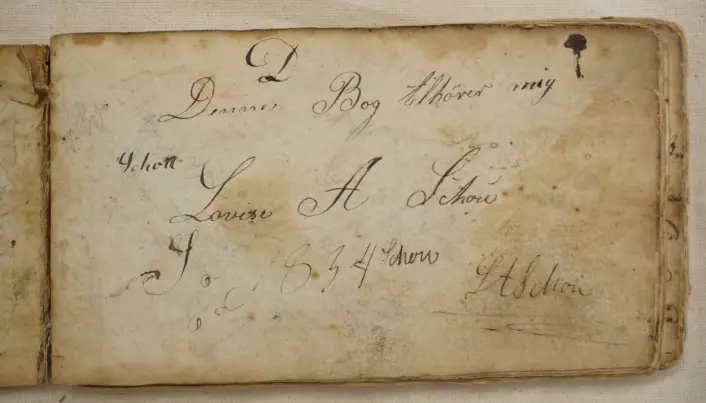 D
Denne Bog tilhörer mig
Schou
Lovise A Schou
834 Schou
L A Schou